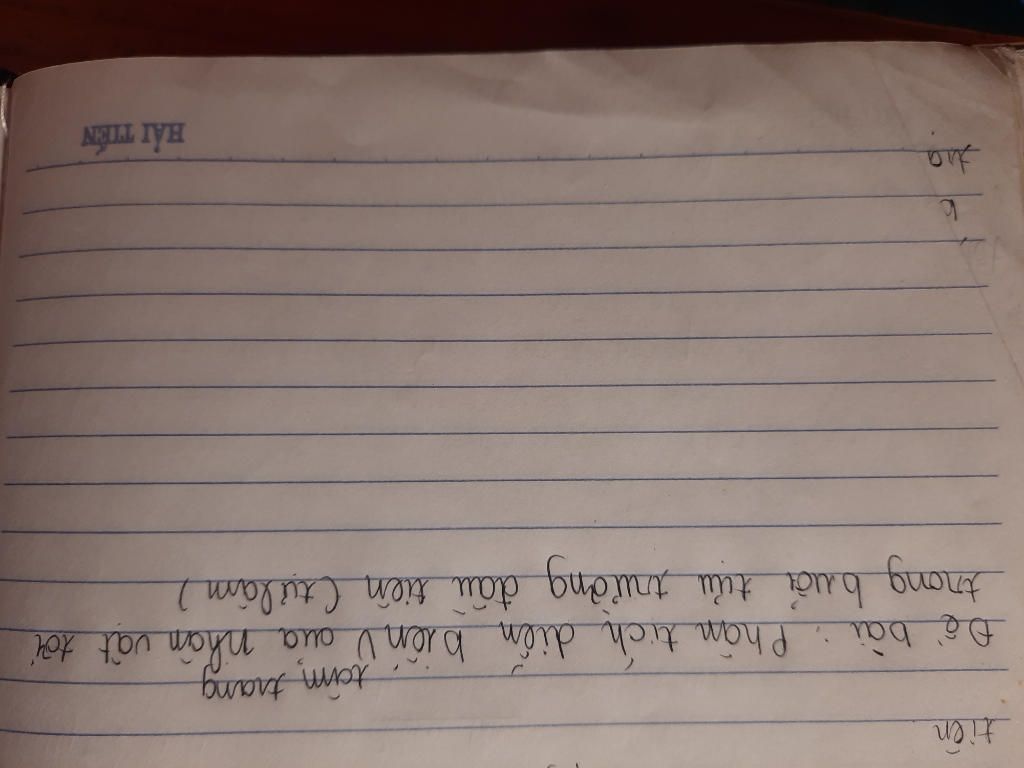 tiên
tâm trạng
Đề bài: Phân tích diễn biến V của nhân vật tôi
trong buổi tựu trường đầu tiên (tự làm)
tra
HẢI TIẾN